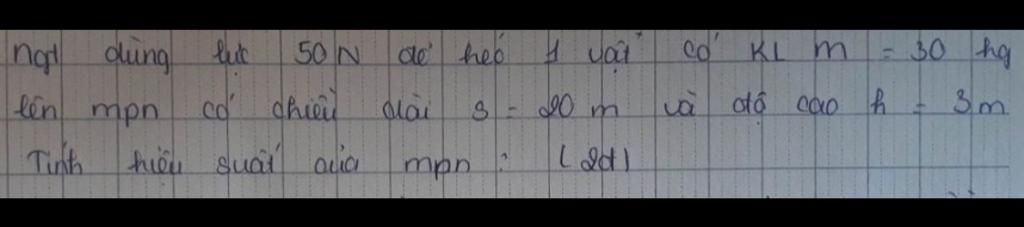 Ngt dùng lực 50N để kéo 1 vật có KL m = 30 kg
lên mpn có chiều dài s = 20 m và độ cao h = 3m
Tính hiệu suất của mpn : (2đ)